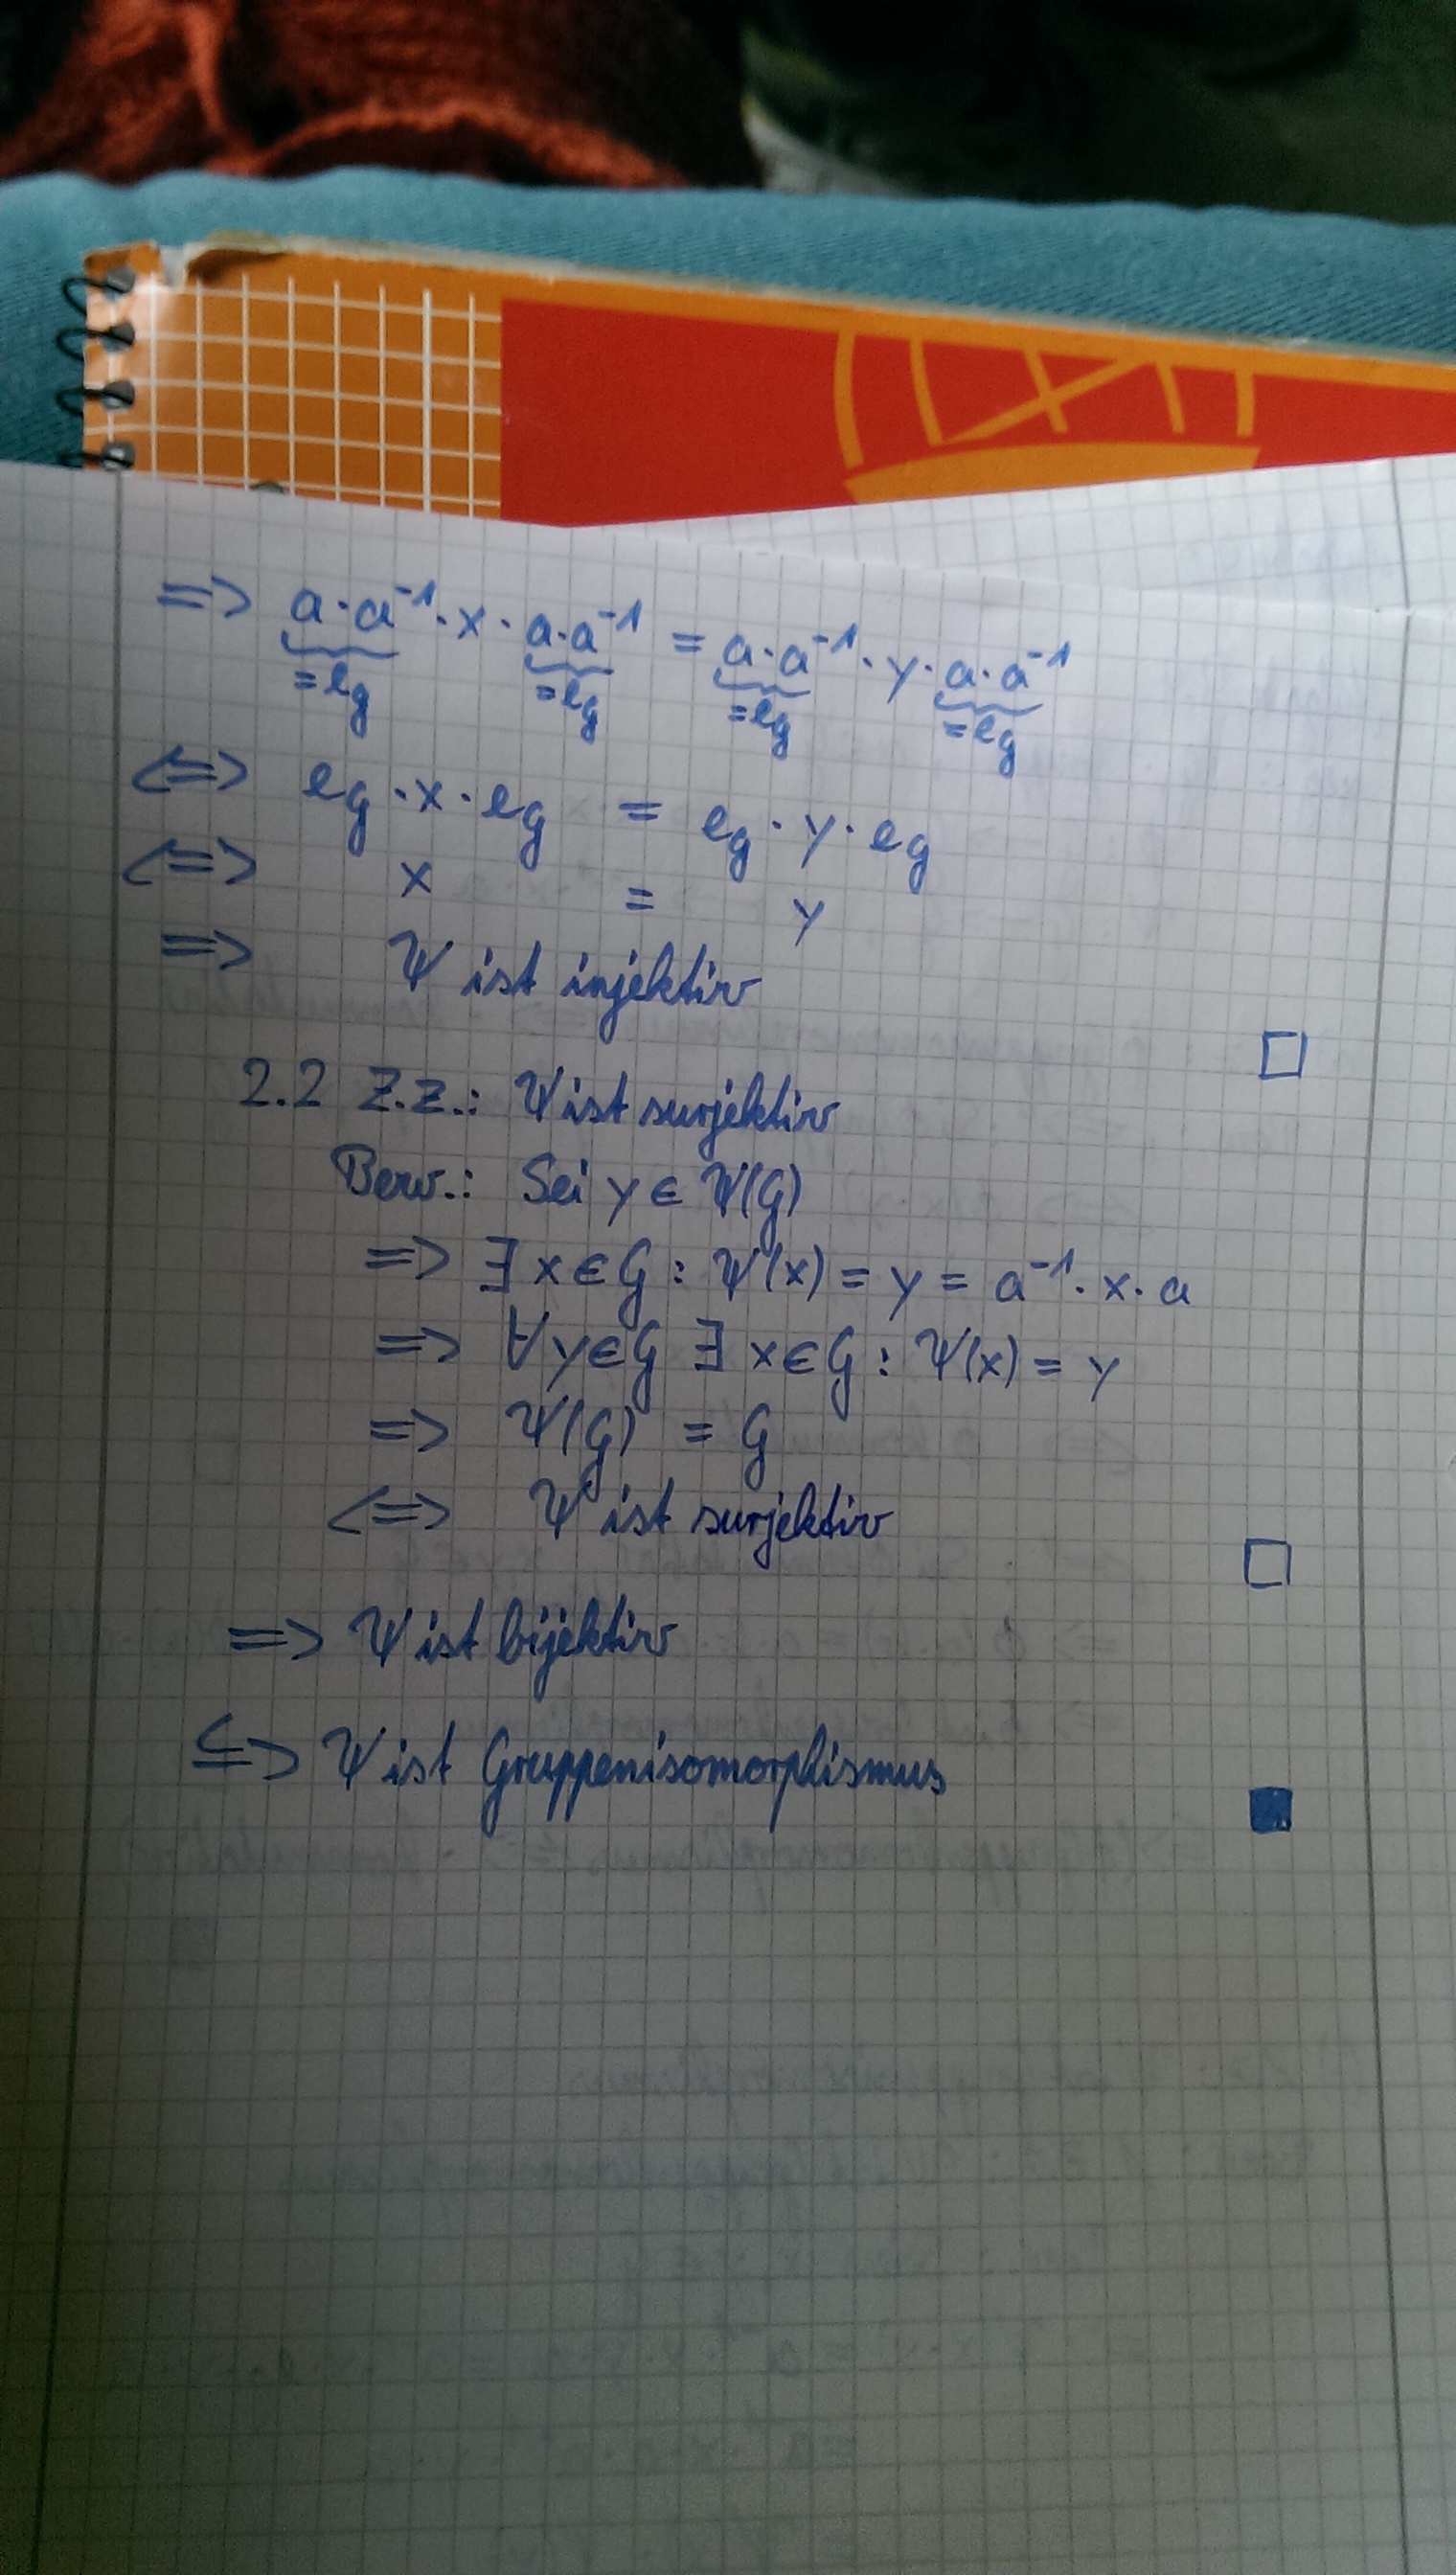 => a·a⁻¹·x·a·a⁻¹ = a·a⁻¹·y·a·a⁻¹
=eg =eg =eg =eg
<=> eg·x·eg = eg·y·eg
<=> x = y
=> Ψ ist injektiv
□
2.2 Z.Z.: Ψ ist surjektiv
Bew.: Sei y ∈ Ψ(G)
=> ∃ x ∈ G : Ψ(x) = y = a⁻¹·x·a
=> ∀ y ∈ G ∃ x ∈ G : Ψ(x) = y
=> Ψ(G) = G
<=> Ψ ist surjektiv
□
=> Ψ ist bijektiv
<=> Ψ ist Gruppenisomorphismus
■